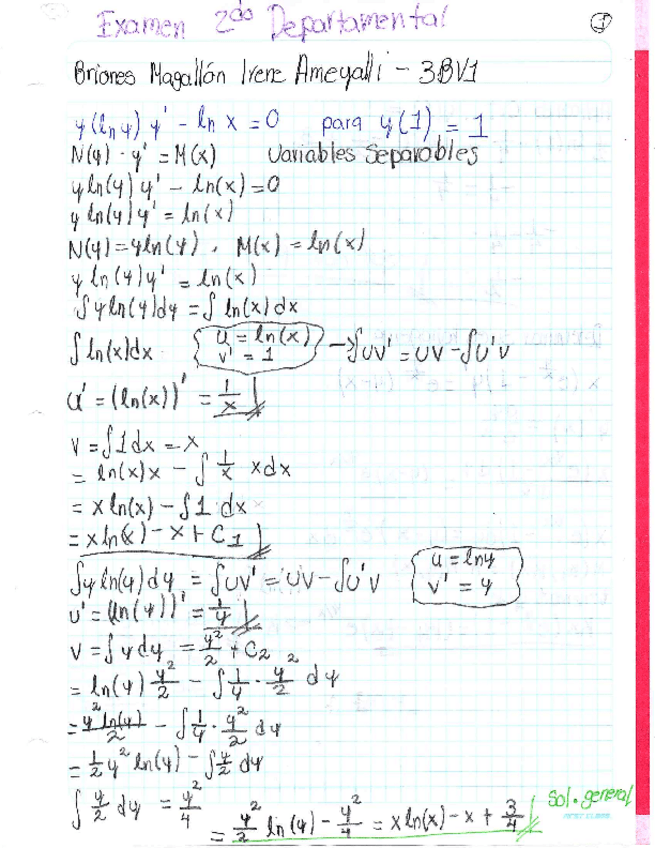 Examen 2do Departamental
1
Briones Magallón Irene Ameyalli - 3BV1
y(ln y) y' - ln x = 0 para y(1) = 1
N(y) · y' = M(x) Variables Separables
y ln(y) y' - ln(x) = 0
y ln(y) y' = ln(x)
N(y) = y ln(y) , M(x) = ln(x)
y ln(y) y' = ln(x)
∫ y ln(y) dy = ∫ ln(x) dx
∫ ln(x) dx u = ln(x) v' = 1 → ∫ uv' = uv - ∫ u'v
u' = (ln(x))' = 1/x
v = ∫ 1 dx = x
= ln(x) x - ∫ 1/x x dx
= x ln(x) - ∫ 1 dx
= x ln(x) - x + C1
∫ y ln(y) dy = ∫ uv' = uv - ∫ u'v u = ln y v' = y
u' = (ln(y))' = 1/y
v = ∫ y dy = y²/2 + C2
= ln(y) y²/2 - ∫ 1/y · y²/2 dy
= y² ln(y)/2 - ∫ 1/y · y²/2 dy
= 1/2 y² ln(y) - ∫ y/2 dy
∫ y/2 dy = y²/4
= y²/2 ln(y) - y²/4 = x ln(x) - x + 3/4 Sol. general